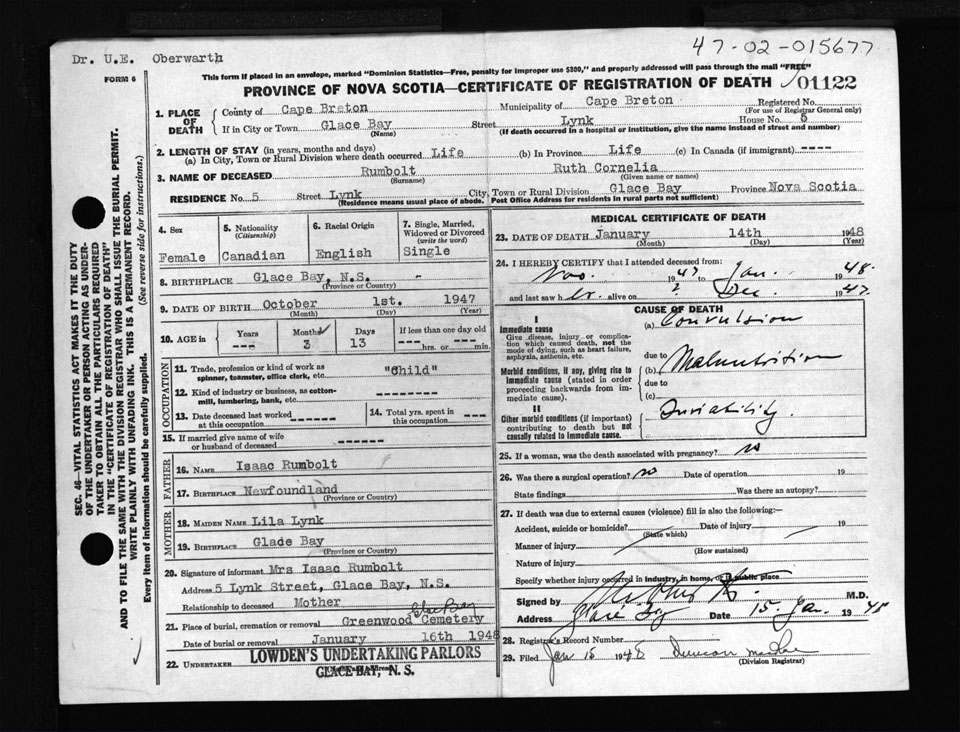 47-02-015677
Dr. U.E. Oberwarth
FORM 6
This form if placed in an envelope, marked "Dominion Statistics—Free, penalty for improper use $300," and properly addressed will pass through the mail "FREE"
PROVINCE OF NOVA SCOTIA—CERTIFICATE OF REGISTRATION OF DEATH 01122
1. PLACE OF DEATH County of Cape Breton Municipality of Cape Breton Registered No.
(For use of Registrar General only)
If in City or Town Glace Bay Street Lynk House No. 5
(Name) (If death occurred in a hospital or institution, give the name instead of street and number)
2. LENGTH OF STAY (in years, months and days)
(a) In City, Town or Rural Division where death occurred Life (b) In Province Life (c) In Canada (if immigrant) ----
3. NAME OF DECEASED Rumbolt Ruth Cornelia
(Surname) (Given name or names)
RESIDENCE No. 5 Street Lynk City, Town or Rural Division Glace Bay Province Nova Scotia
(Residence means usual place of abode. Post Office Address for residents in rural parts not sufficient)
4. Sex
Female
5. Nationality
(Citizenship)
Canadian
6. Racial Origin
English
7. Single, Married, Widowed or Divorced
(write the word)
Single
8. BIRTHPLACE Glace Bay, N.S.
(Province or Country)
9. DATE OF BIRTH October 1st. 1947
(Month) (Day) (Year)
10. AGE in Years Months Days If less than one day old
--- 3 13 --- hrs. or --- min.
OCCUPATION
11. Trade, profession or kind of work as spinner, teamster, office clerk, etc. "Child"
12. Kind of industry or business, as cotton-mill, lumbering, bank, etc. ---------
13. Date deceased last worked at this occupation -----
14. Total yrs. spent in this occupation ---
15. If married give name of wife or husband of deceased ------
FATHER
16. NAME Isaac Rumbolt
17. BIRTHPLACE Newfoundland
(Province or Country)
MOTHER
18. MAIDEN NAME Lila Lynk
19. BIRTHPLACE Glace Bay
(Province or Country)
20. Signature of informant Mrs Isaac Rumbolt
Address 5 Lynk Street, Glace Bay, N.S.
Relationship to deceased Mother
Glace Bay
21. Place of burial, cremation or removal Greenwood Cemetery
Date of burial or removal January 16th 1948
22. UNDERTAKER LOWDEN'S UNDERTAKING PARLORS
GLACE BAY, N. S.
MEDICAL CERTIFICATE OF DEATH
23. DATE OF DEATH January 14th 1948
(Month) (Day) (Year)
24. I HEREBY CERTIFY that I attended deceased from:
Nov. 1947 to Jan. 1948.
and last saw her alive on ? Dec. 1947.
CAUSE OF DEATH
I
Immediate cause
Give disease, injury or complication which caused death, not the mode of dying, such as heart failure, asphyxia, asthenia, etc.
(a) Convulsion
due to
Morbid conditions, if any, giving rise to immediate cause (stated in order proceeding backwards from immediate cause).
(b) Malnutrition
due to
(c)
II
Other morbid conditions (if important) contributing to death but not causally related to immediate cause.
25. If a woman, was the death associated with pregnancy? no
26. Was there a surgical operation? no Date of operation 19
State findings Was there an autopsy?
27. If death was due to external causes (violence) fill in also the following:
Accident, suicide or homicide? Date of injury 19
(State which)
Manner of injury
(How sustained)
Nature of injury
Specify whether injury occurred in industry, in home, or in public place
Signed by M.D.
Address Glace Bay Date 15. Jan. 1948
28. Registrar's Record Number
29. Filed Jan 15 1948 Duncan MacRae
(Division Registrar)
SEC. 46—VITAL STATISTICS ACT MAKES IT THE DUTY
OF THE UNDERTAKER OR PERSON ACTING AS UNDER-
TAKER TO OBTAIN ALL THE PARTICULARS REQUIRED
IN THE "CERTIFICATE OF REGISTRATION OF DEATH"
AND TO FILE THE SAME WITH THE DIVISION REGISTRAR WHO SHALL ISSUE THE BURIAL PERMIT.
WRITE PLAINLY WITH UNFADING INK. THIS IS A PERMANENT RECORD.
Every item of information should be carefully supplied. (See reverse side for instructions.)